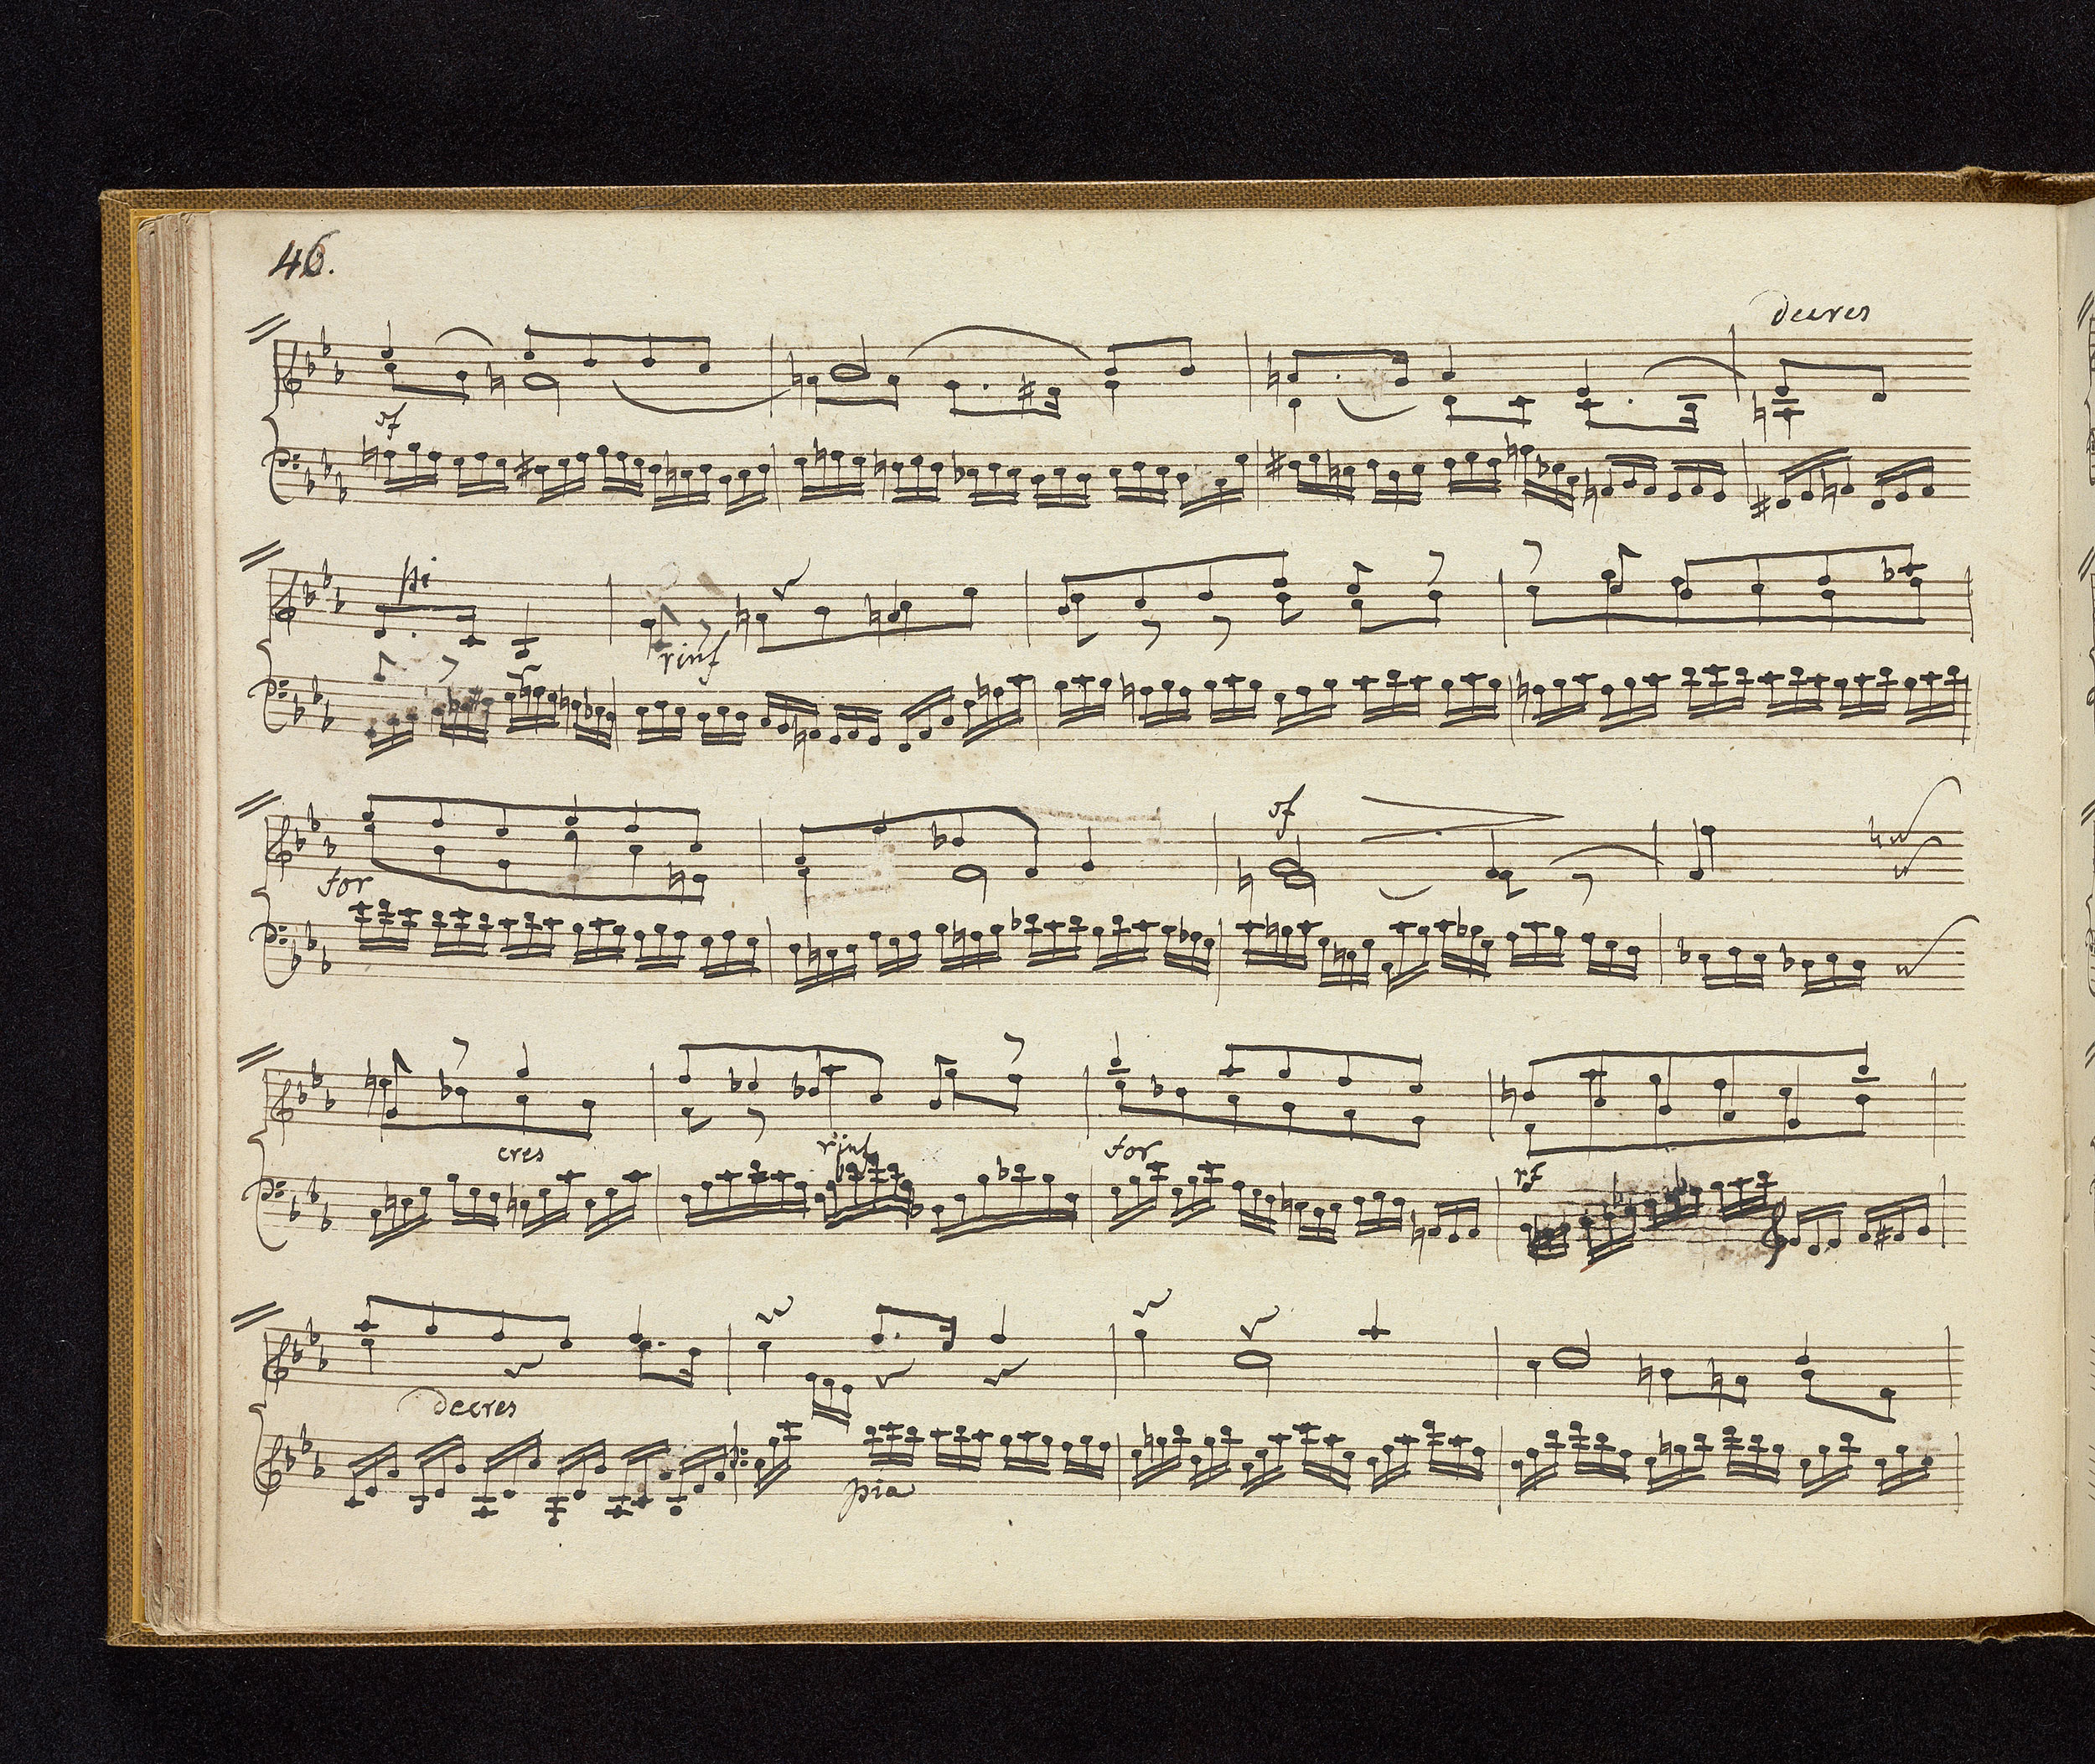 46.
decres
sf
pi
rinf
sf
for
cres
rinf
for
rf
decres
pia